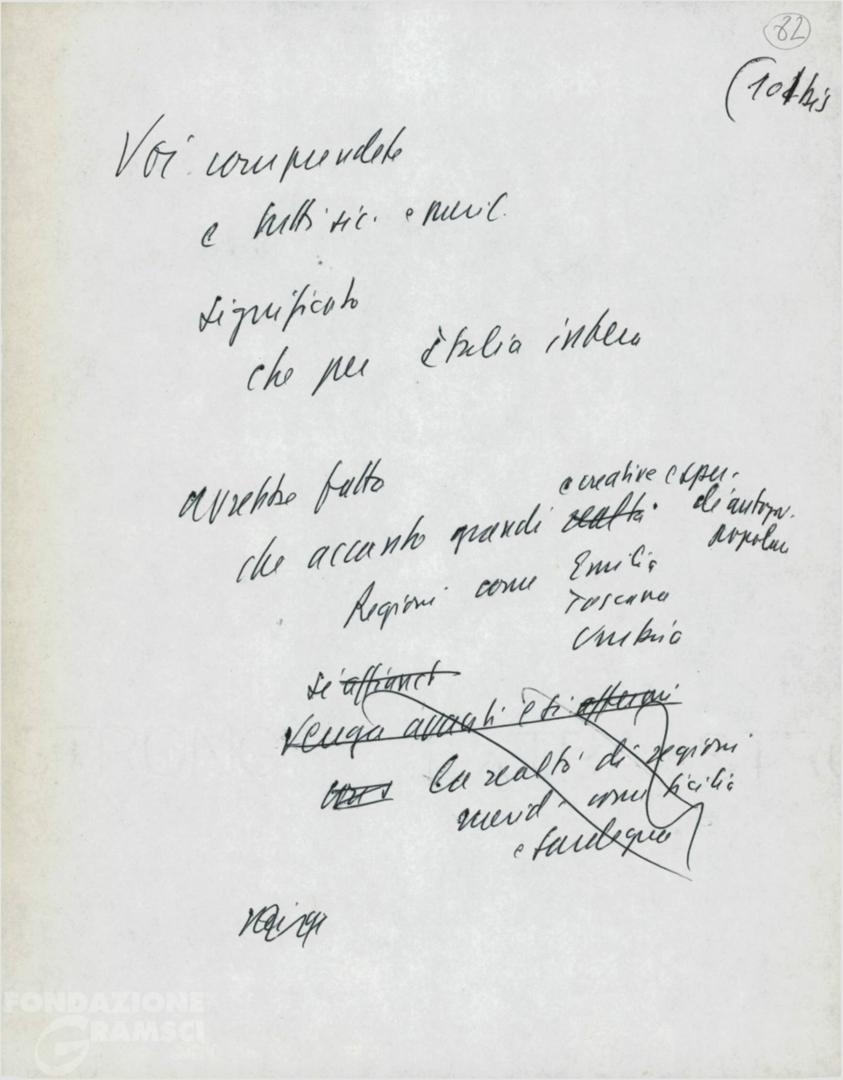 82
(10/bis
Voi comprendete
e tutti sic. e merid.
significato
che per Italia intera
avrebbe fatto
e creative esper.
che accanto grandi realtà di autogov.
popolare
Regioni come Emilia
Toscana
Umbria
si affianchi
Venga avanti e si affermi
la realtà di regioni
merid. come Sicilia
e Sardegna
FONDAZIONE
GRAMSCI